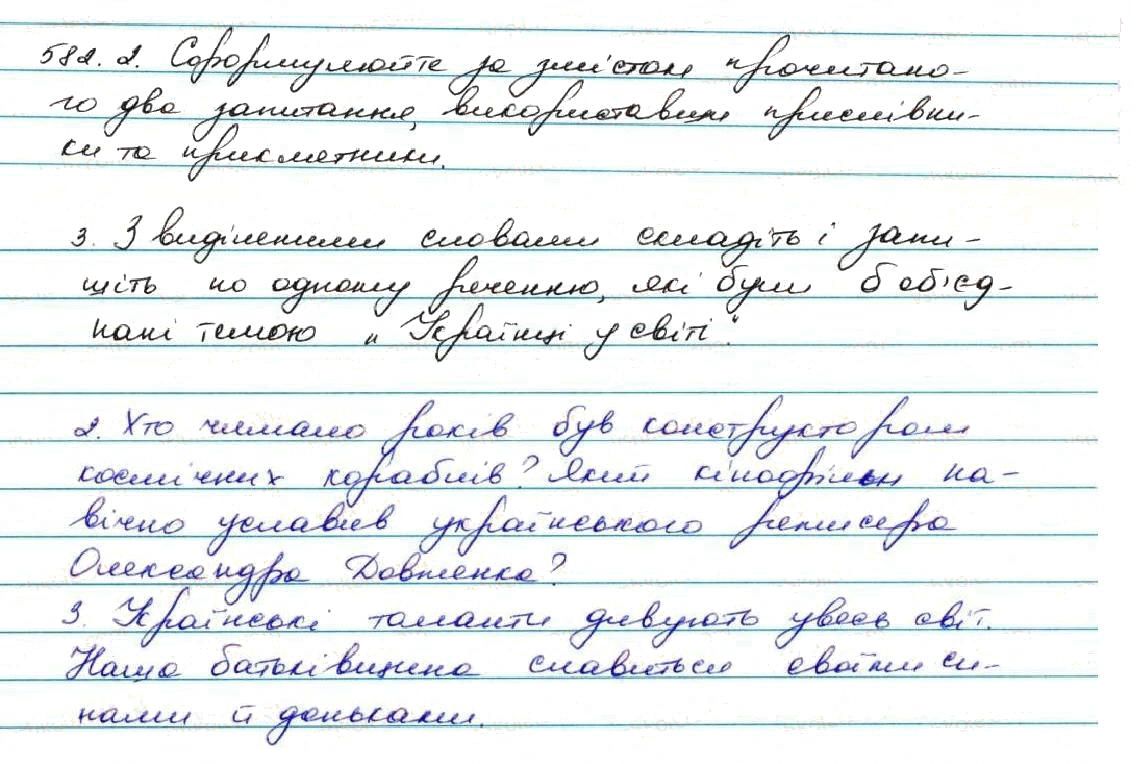 582. 2. Сформулюйте за змістом прочитано-
го два запитання, використавши прислівни-
ки та прикметники.
3. З виділеними словами складіть і запи-
шіть по одному реченню, які були б об'єд-
нані темою „Українці у світі".
2. Хто чимало років був конструктором
космічних кораблів? Який кінофільм на-
вічно уславив українського режисера
Олександра Довженка?
3. Українські таланти дивують увесь світ.
Наша батьківщина славиться своїми си-
нами й доньками.